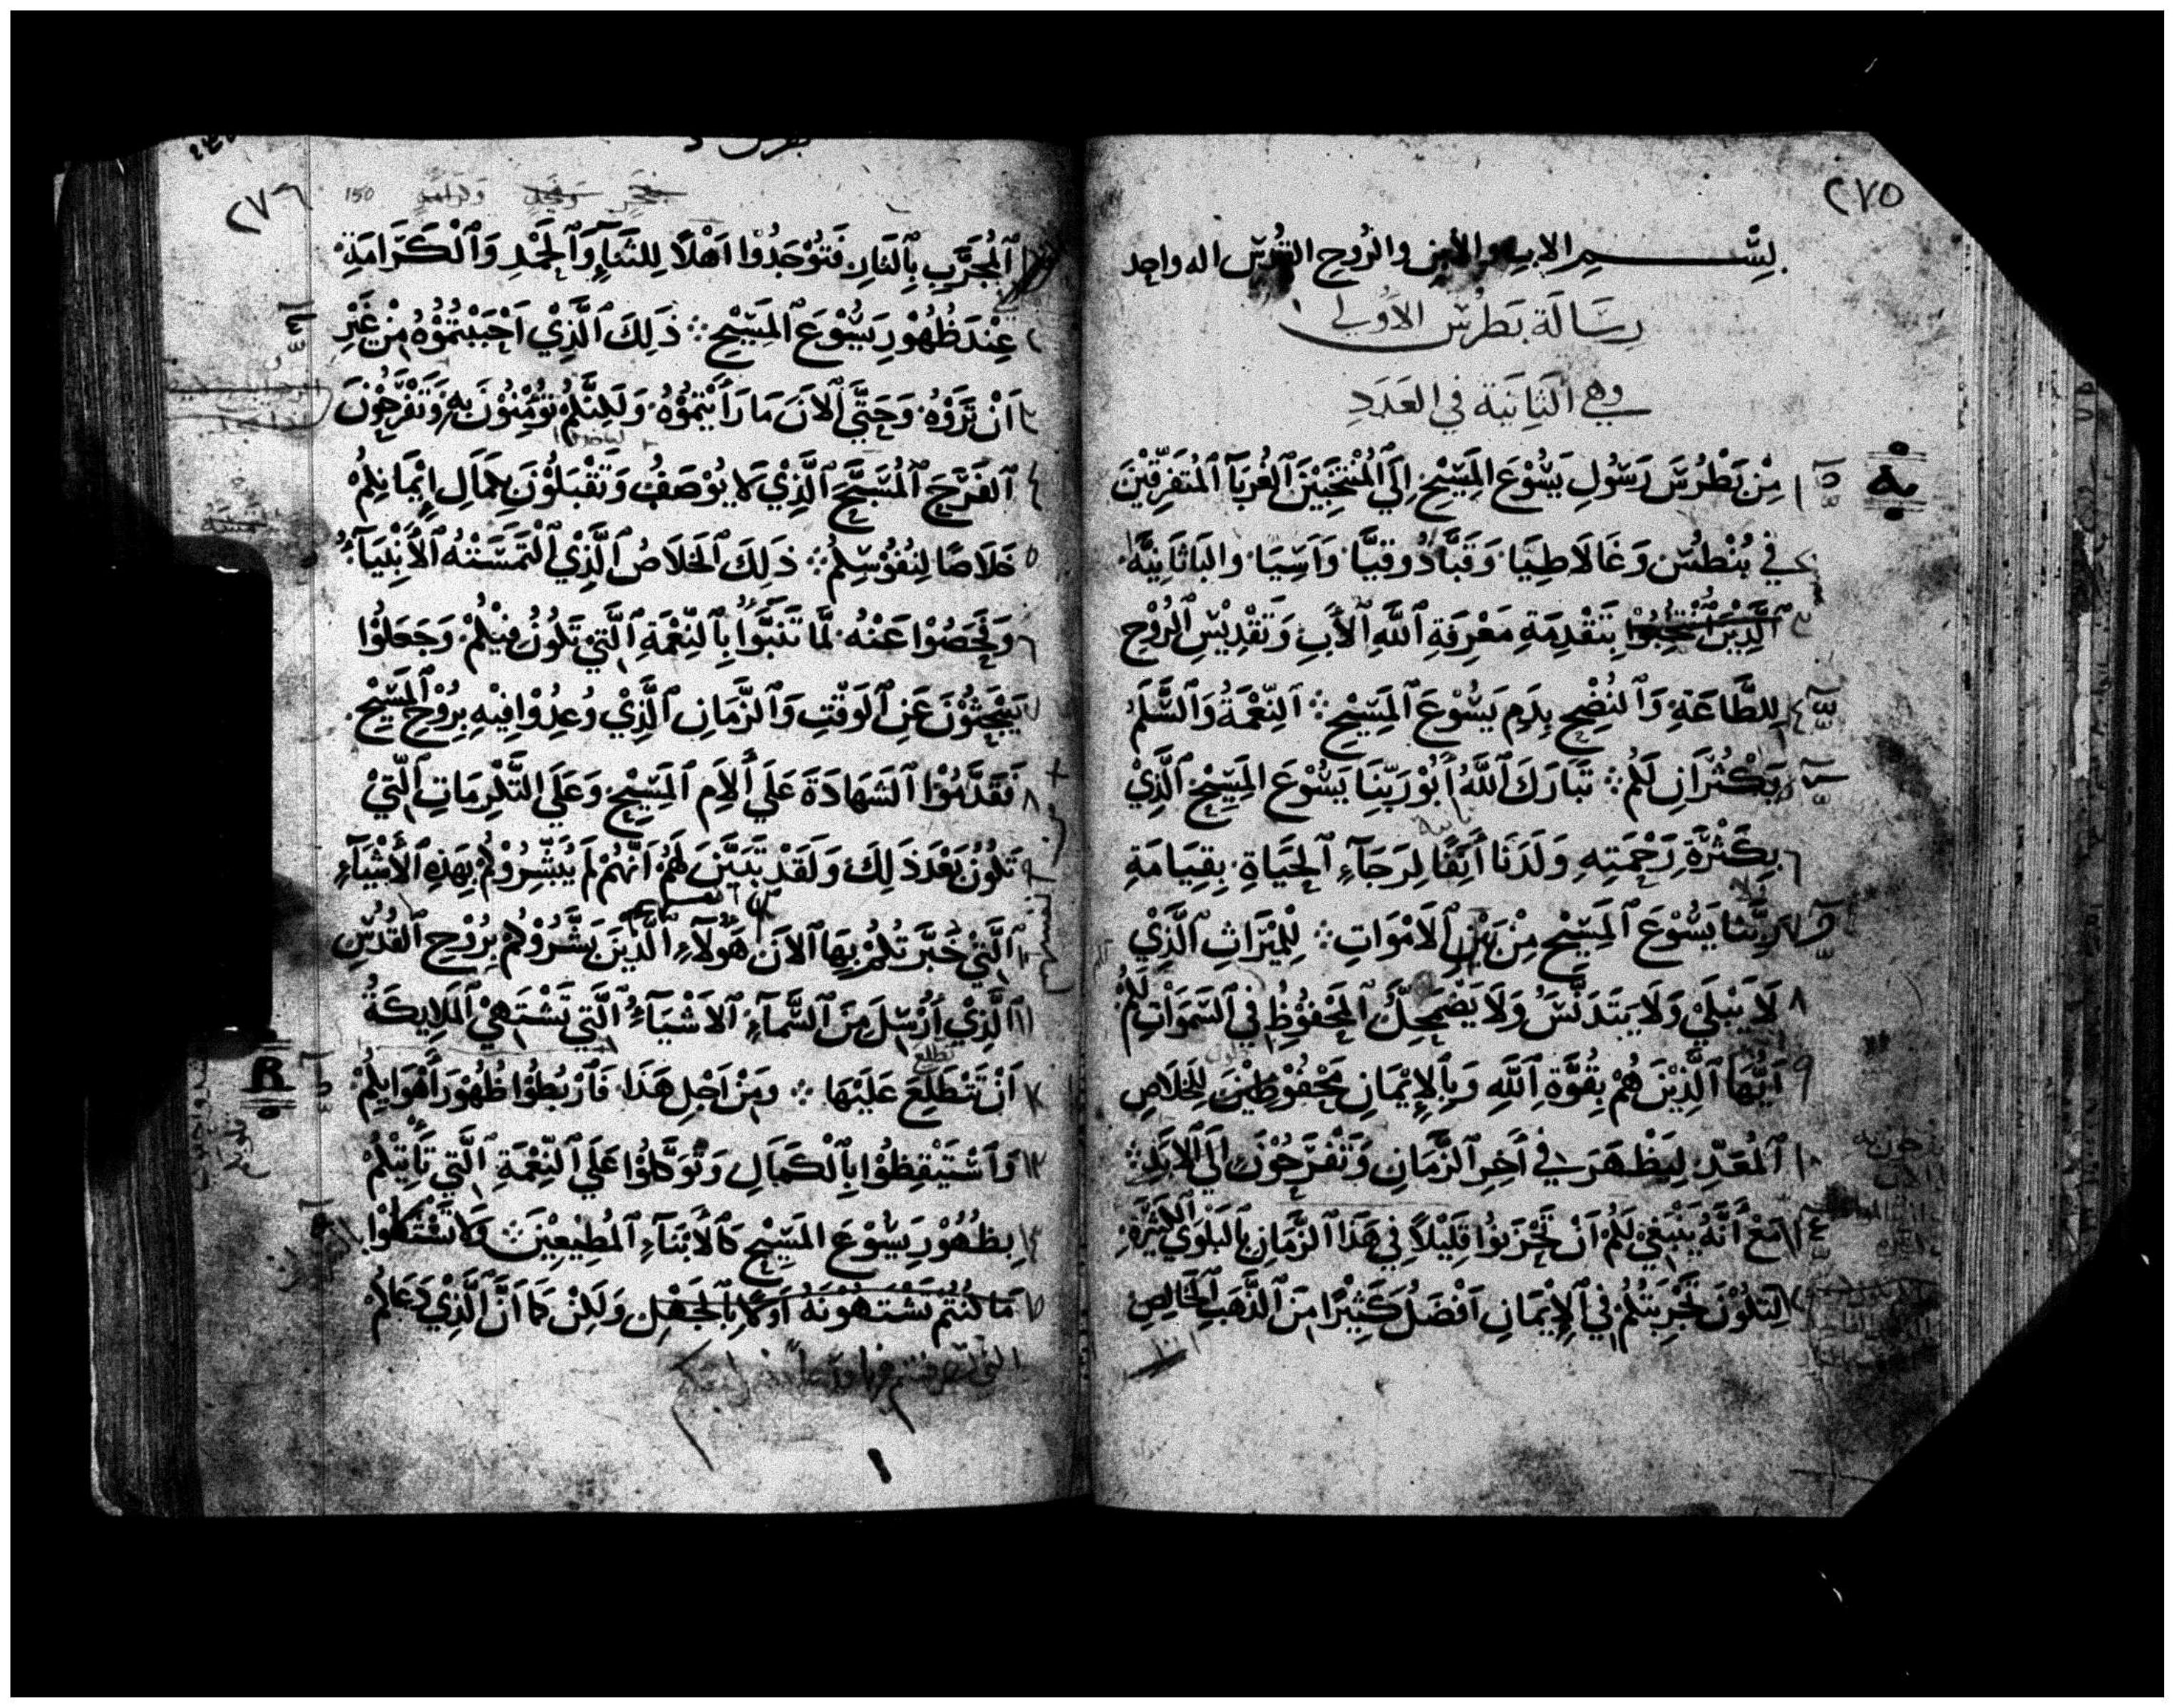 ٢٧٥
بِسْـــمِ الاب والابن والرُوحِ القُدُس اله واحِد
رِسَالَة بَطْرُس الاَوُلي
وهي الثَانيَة في العَدَدِ
١ مِنْ بَطْرُسَ رَسُولِ يَسُوْعَ المَسِيْحِ إِلَي ٱلْمُنْتَجَبِيْنَ ٱلغُرَبَآ ٱلمُتَفَرِّقِيْنَ
٢ في بُنْطُسَ وَغَالَاطِيَا وَقَبَّادُوقِيَّا وَآسِيَا والبَاثَانِيَّة
٣ ٱلَّذِيْنَ ٱنْتُجِبُوْا بِتَقْدِمَةِ مَعْرِفَةِ ٱللَّهِ ٱلأَبِ وَتَقْدِيْسِ ٱلرُوْحِ
٤ لِلطَّاعَةِ وَٱلنُضْحِ بِدَمِ يَسُوْعَ ٱلمَسِيْحِ ܀ اَلنِّعْمَةُ وَٱلسَّلَمُ
يَكْثُرَانِ لَكُم ܀ تَبَارَكَ ٱللَّهُ أَبُوْ رَبِّنَا يَسُوْعَ المَسِيْحِ ٱلَّذِيْ
٦ بِكَثْرَةِ رَحْمَتِهِ وَلَدَنَا أَنِفًا لِرَجَآءِ ٱلحَيَاةِ بِقِيَامَةِ
٧ رَبِّنَا يَسُوْعَ ٱلمَسِيْحِ مِنْ بَيْنِ ٱلاَمْوَاتِ ܀ لِلْمِيْرَاثِ ٱلَّذِيْ
٨ لَا يَبْلَي وَلَا يَتَدَنَّسُ وَلَا يَضْمَحِلُّ ٱلمَحْفُوْظِ في ٱلسَمَوَاتِ لَكُمْ
٩ أَيُّهَا ٱلَّذِيْنَ هُمْ بِقُوَّةِ ٱللَّهِ وَبِٱلإِيْمَانِ مَحْفُوْظِيْنَ لِلخَلَاصِ
١٠ ٱلمُعَدِّ لِيَظْهَرَ في آخِرِ ٱلزَّمَانِ وَتَفْرَحُوْنَ اِلَي ٱلاَبَدِ
١١ مَعْ أَنَّهُ يَنْبَغِيْ لَكُمْ اَنْ تَحْزَنُوا قَلِيْلاً فِي هَذَا ٱلزَّمَانِ بِٱلبَلْوَي ٱلكَثِيْرَةِ
١٢ لِتَكُوْنَ تَجْرِبَتُكُمْ فِي ٱلإِيْمَانِ اَفْضَلُ كَثِيْرًا مِنَ ٱلذَّهَبِ ٱلخَالِصِ
٢٧٦
150
ٱلمُجَرَّبِ بِٱلنَارِ فَتُوْجَدُوْا اَهْلاً لِلثَنَآءِ وَٱلحَمْدِ وَٱلْكَرَامَةِ
٢ عِنْدَ ظُهُوْرِ يَسُوْعَ ٱلمَسِيْحِ ܀ ذَلِكَ ٱلَّذِيْ اَحْبَبْتُمُوْهُ مِنْ غَيْرِ
٣ اَنْ تَرَوْهُ وَحَتَّي ٱلاَنَ مَا رَأَيْتُمُوْهُ وَلَكِنَّكُمْ تُؤْمِنُوْنَ بِهِ وَتَفْرَحُوْنَ
٤ ٱلفَرَحَ ٱلمُسَبَّحَ ٱلَّذِيْ لَا يُوْصَفُ وَتَقْبَلُوْنَ بِكَمَالِ إِيْمَانِكُمْ
٥ خَلَاصًا لِنُفُوْسِكُمْ ܀ ذَلِكَ ٱلخَلَاصُ ٱلَّذِيْ ٱلْتَمَسَتْهُ ٱلأَنْبِيَآءُ
٦ وَفَحَصُوْا عَنْهُ لَمَّا تَنَبَّوْا بِٱلنِّعْمَةِ ٱلَّتِي تَكُوْنُ فِيْكُمْ وَجَعَلُوْا
٧ يَبْحَثُوْنَ عَنِ ٱلوَقْتِ وَٱلزَّمَانِ ٱلَّذِيْ وُعِدُوْا فِيْهِ بِرُوْحِ ٱلمَسِيْحِ
٨ فَتَقَدَّمُوْا ٱلشَهَادَةَ عَلَي أَلاَمِ ٱلمَسِيْحِ وَعَلَي التَّكْرِمَاتِ ٱلَّتِيْ
٩ تَكُوْنُ بَعْدَ ذَلِكَ وَلَقَدْ تَبَيَّنَ لَهُمْ اَنَّهُمْ لَمْ يُبَشِّرُوْكُمْ بِهَذِهِ ٱلأَشْيَآءِ
١٠ ٱلَّتِي خُبِّرْتُكُمْ بِهَا ٱلاَنَ هَؤُلآءِ ٱلَّذِيْنَ بَشَّرُوْكُمْ بِرُوْحِ ٱلقُدُسِ
١١ ٱلَّذِيْ اُرْسِلَ مِنَ ٱلسَّمَآءِ ٱلاَشْيَآءُ ٱلَّتِي تَشْتَهِيْ ٱلمَلَايِكَةُ
١٢ اَنْ تَطَّلِعَ عَلَيْهَا ܀ ومِنْ اَجْلِ هَذَا فَٱرْبُطُوْا ظُهُوْرَ أَهْوَايِكُمْ
١٣ وَٱسْتَيْقِظُوْا بِٱلْكَمَالِ وَتَوَكَّلُوْا عَلَي ٱلنِّعْمَةِ ٱلَّتِي تَأْتِيْكُمْ
١٤ بِظُهُوْرِ يَسُوْعَ المَسِيْحِ كَٱلأَبْنَآءِ ٱلمُطِيْعِيْنَ وَلَا تَشْتَاقُوْا
١٥ مَا كُنْتُم تَشْتَهُوْنَهُ أَوَّلًا بِٱلجَهْلِ وَلَكِنْ كَمَا اَنَّ ٱلَّذِيْ دَعَاكُمْ